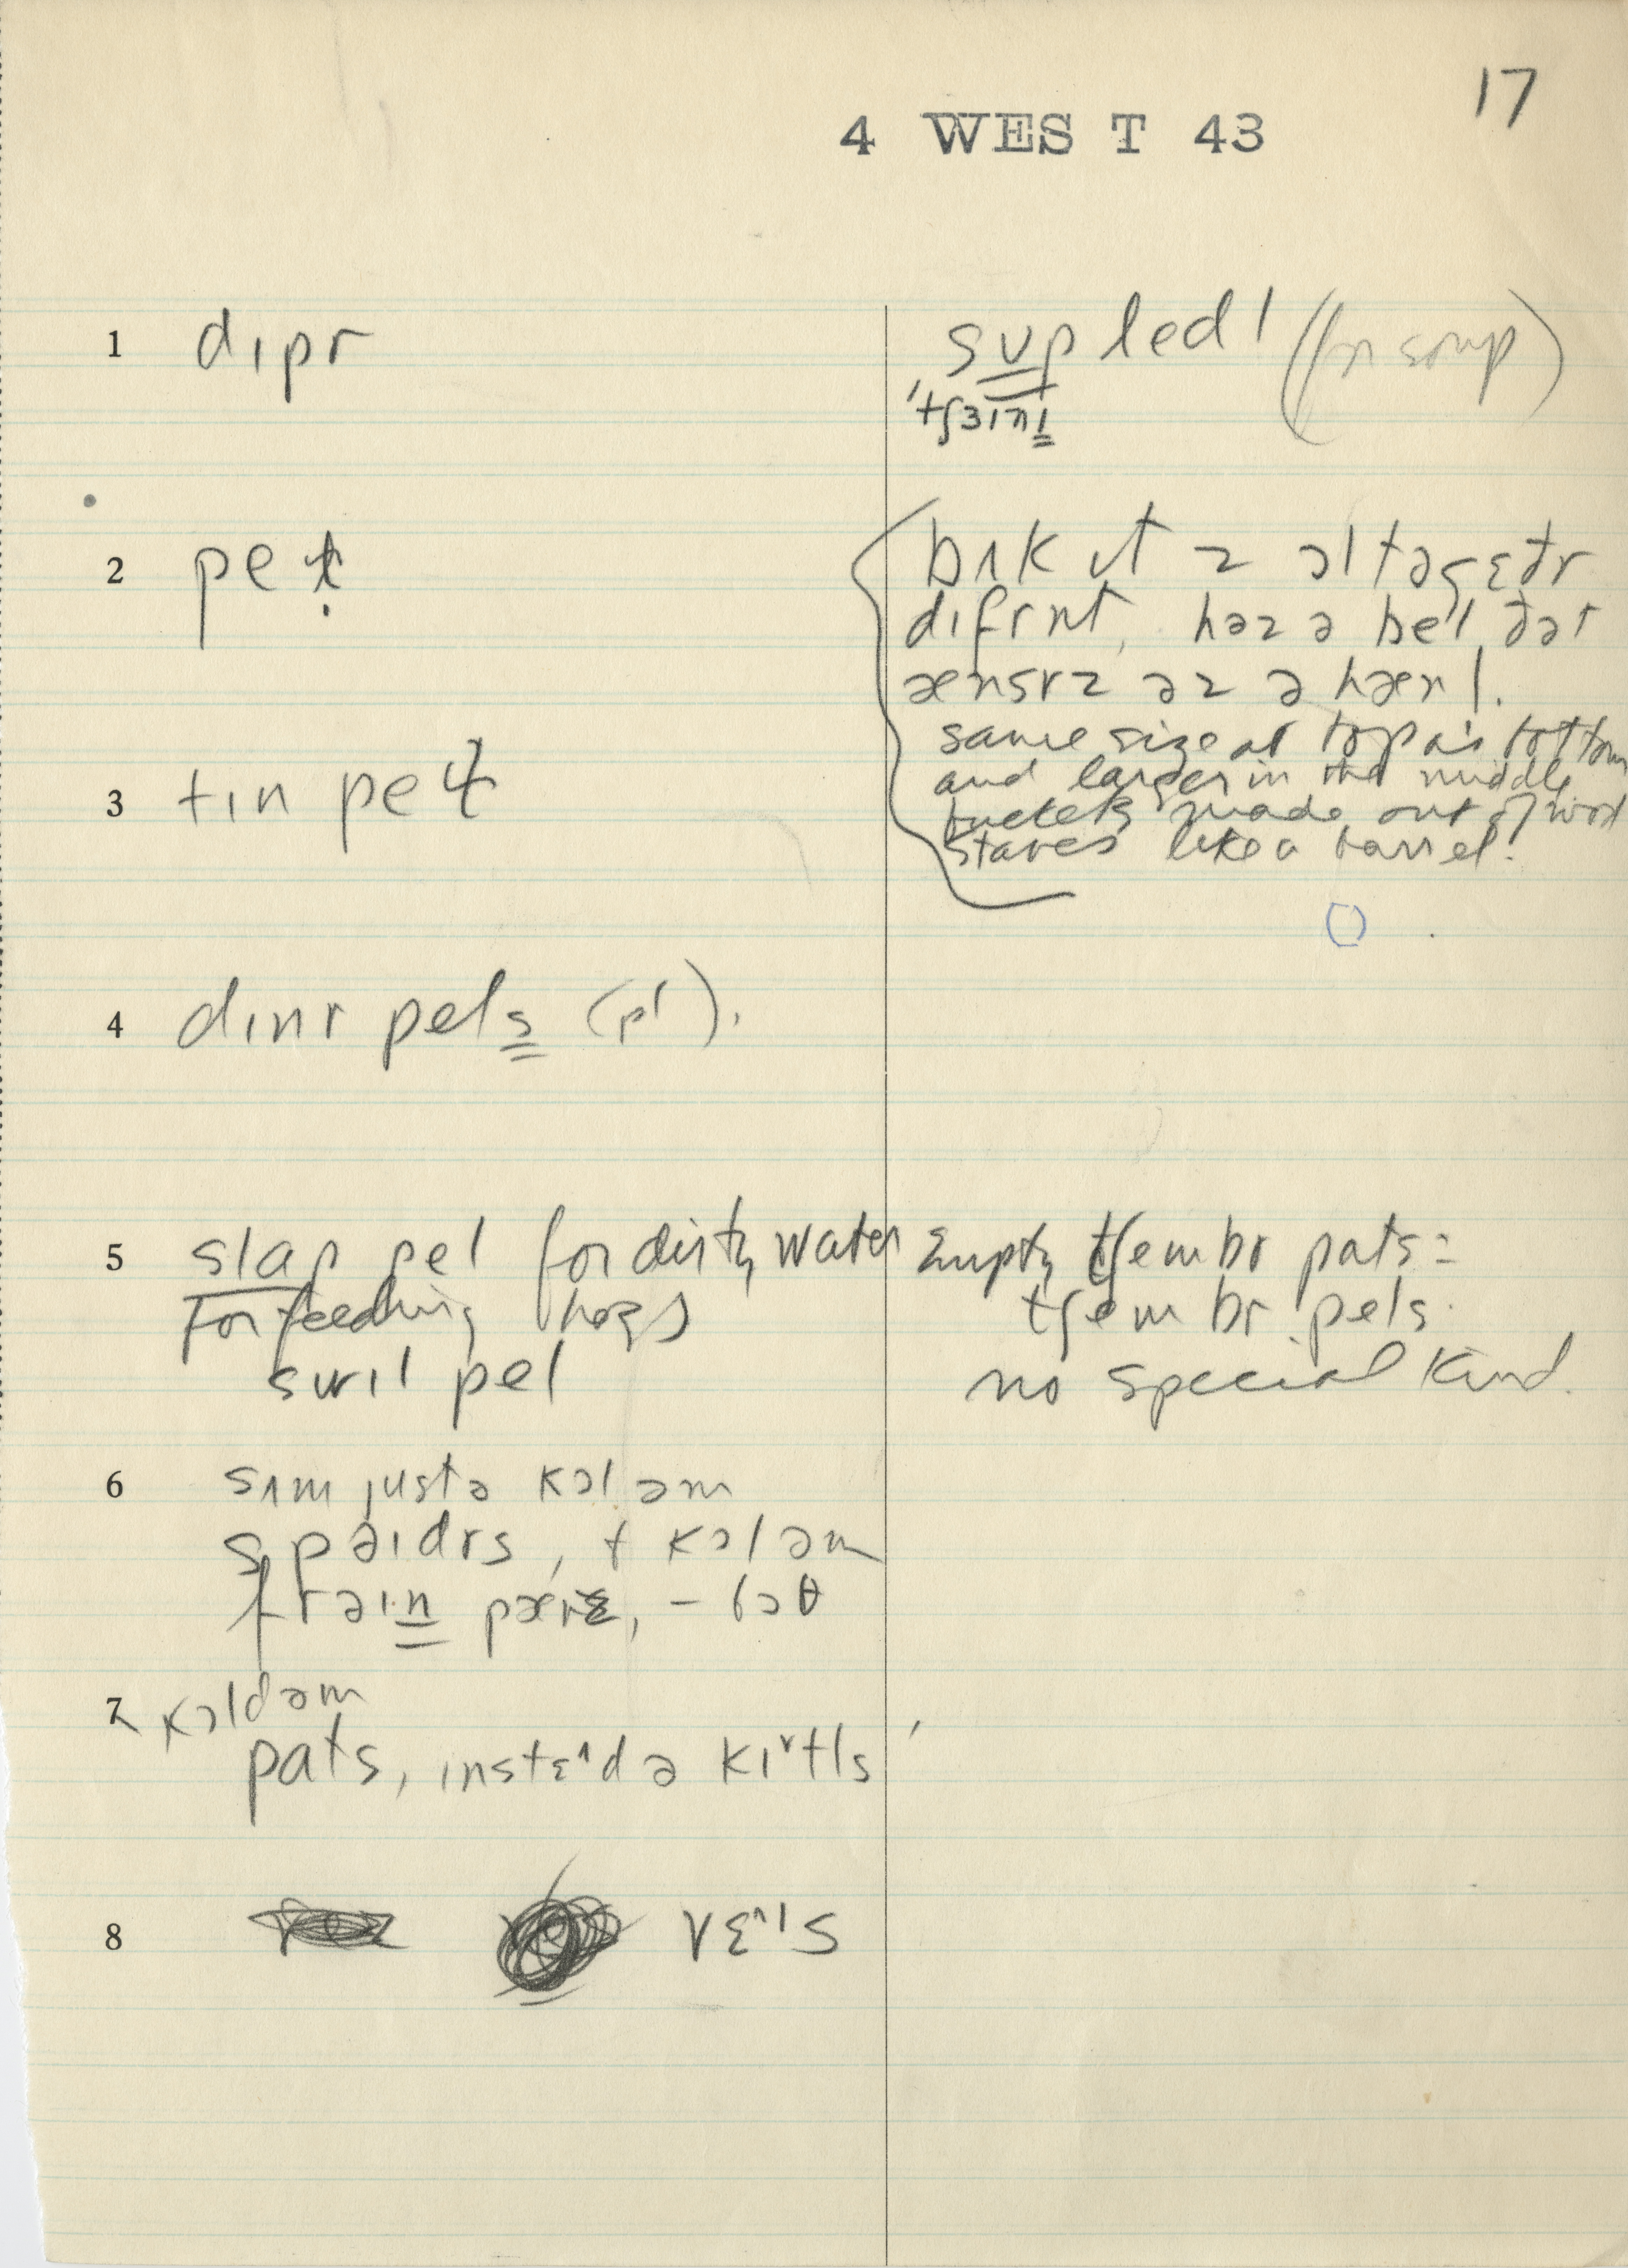 17
4 WEST 43
1 dɪpr
sʊp ledl (for soup)
2 peɫ
bʌkɪt z ɔltəgɛðr
difrnt, həz ə bel ðət
ænsrz əz ə hænl.
same size at top as bottom
and larger in the middle
buckets made out of wood
staves like a barrel.
3 tɪn peɫ
4 dɪnr pels (pl).
5 slap pel for dirty water
for feeding hogs
swɪl pel
Empty tʃembr pats =
tʃembr pels.
no special kind.
6 sʌm justə kɔl əm
spəɪdrs, + kɔl əm
frəɪn
7 kɔld əm
pats, instɛ^d ə kɪ˅tls
8 vɛ^ɪs